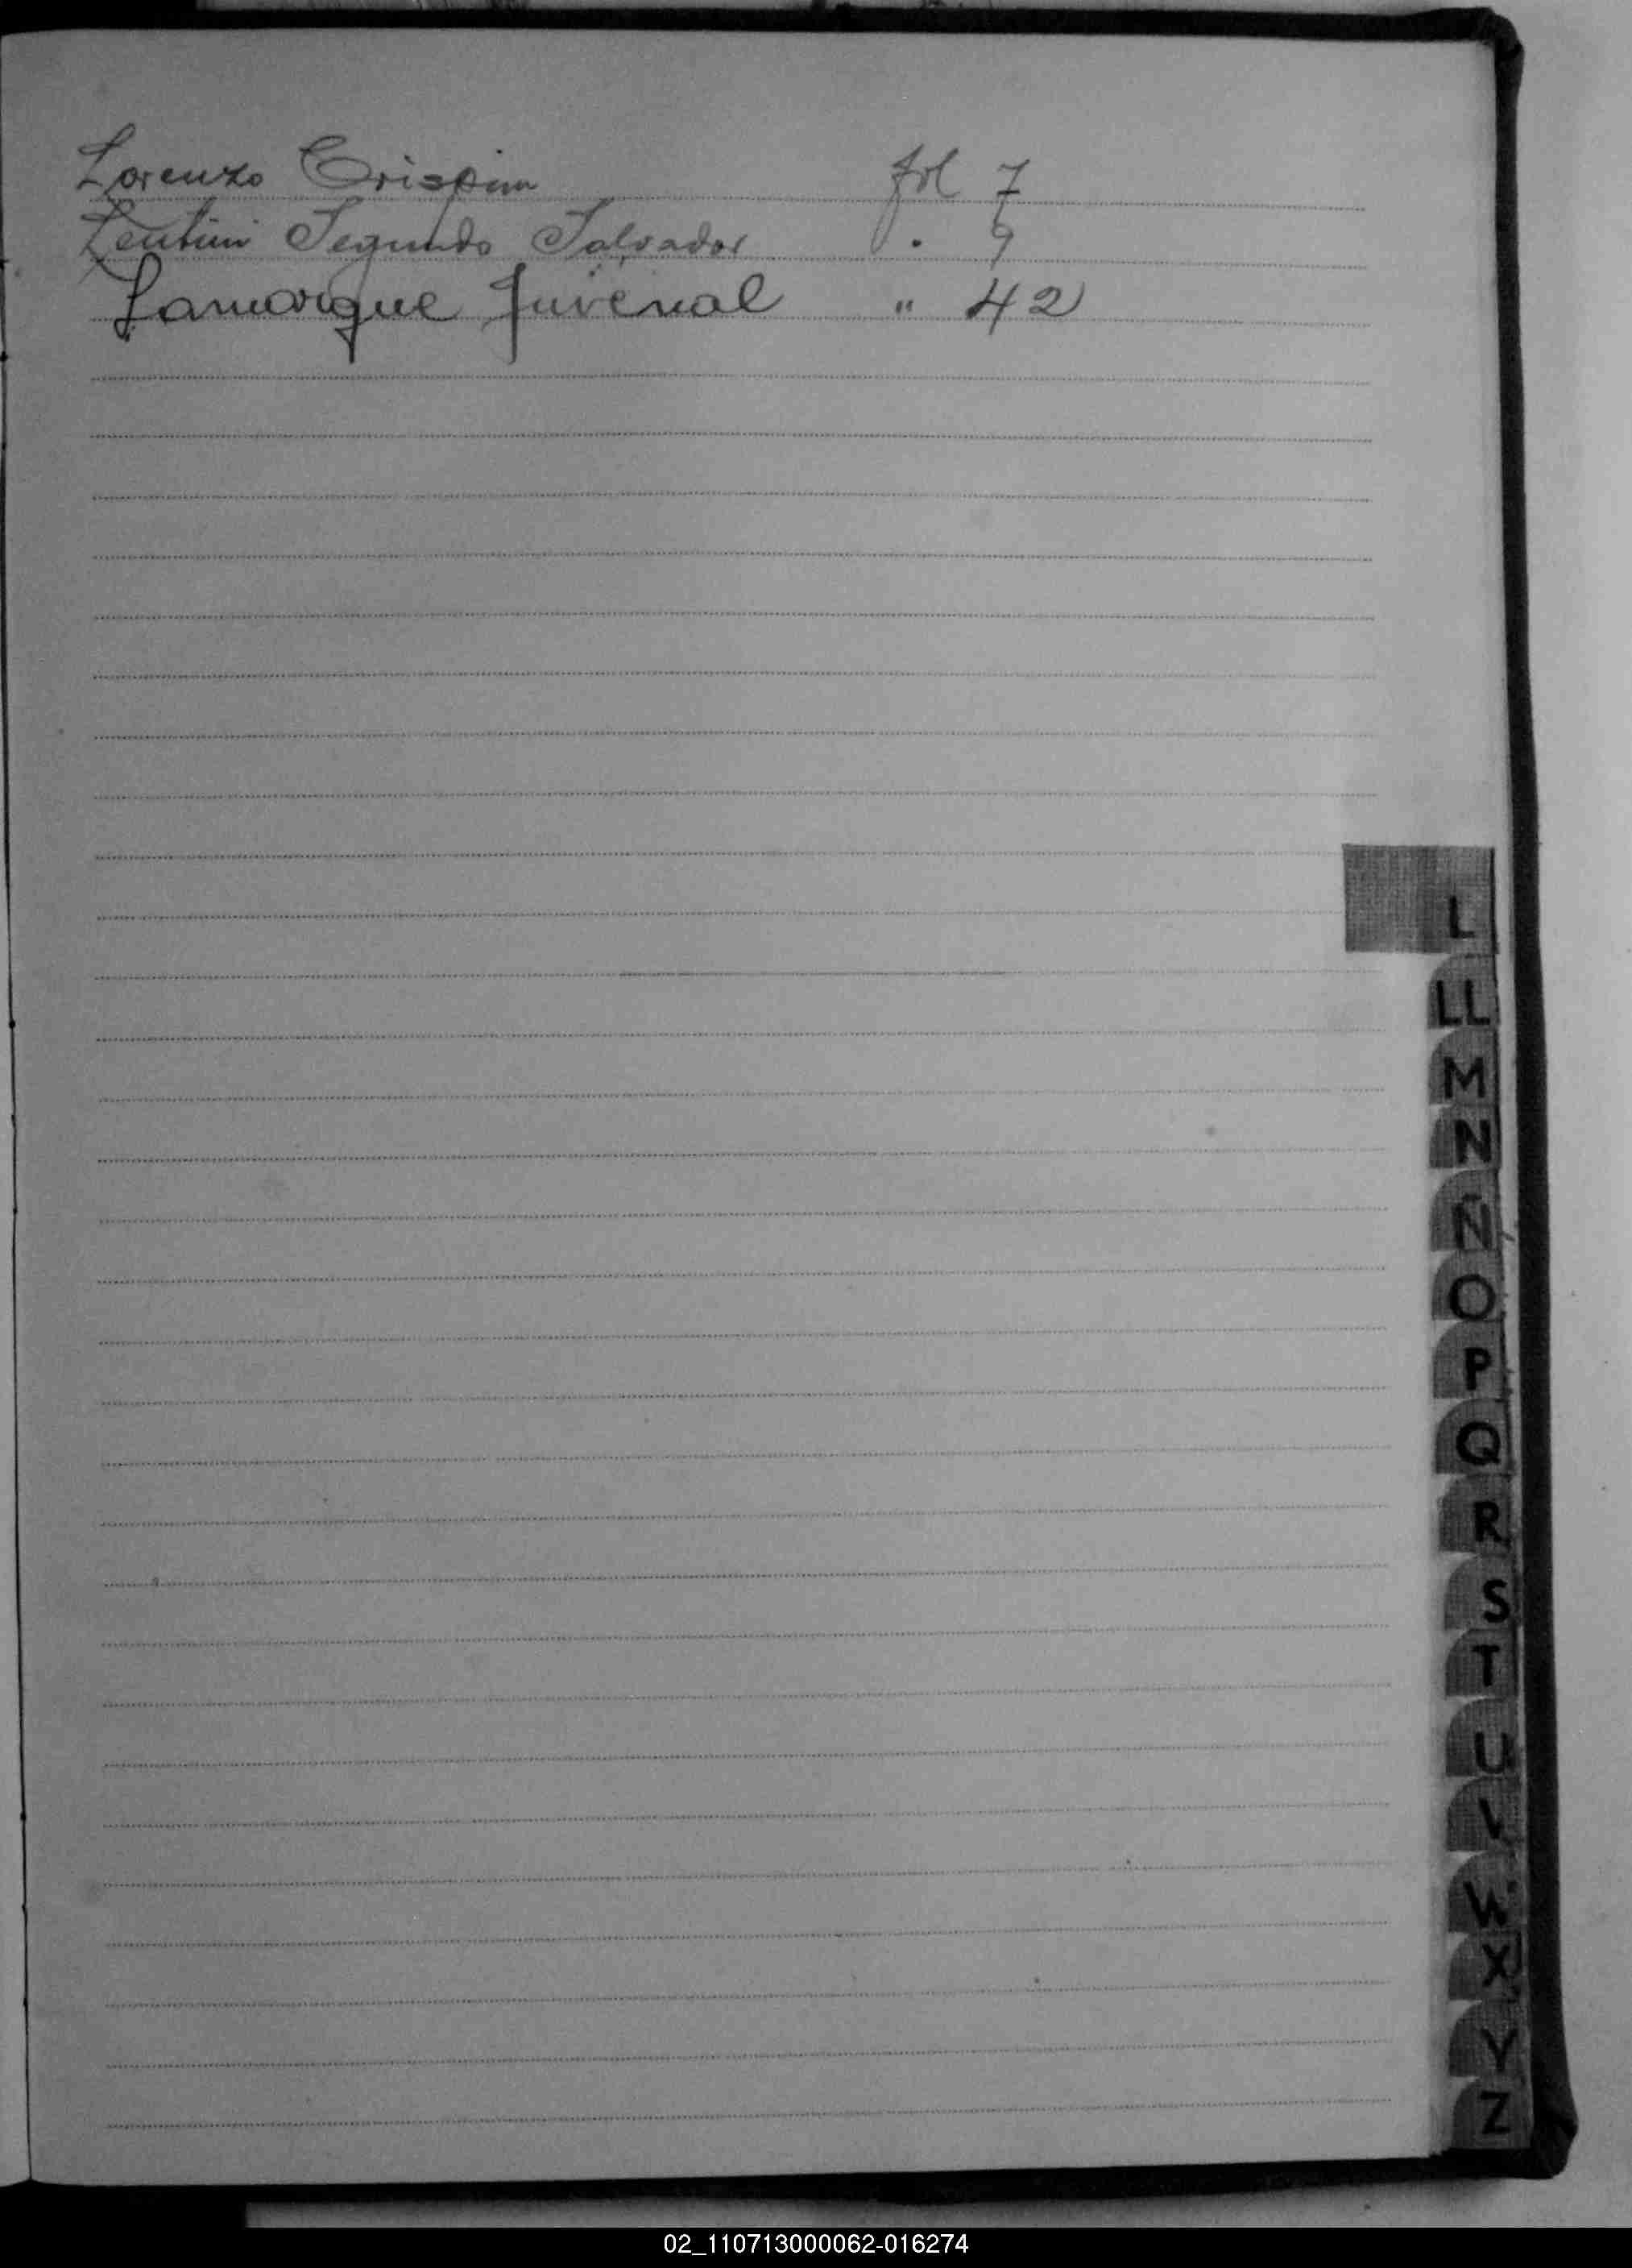 Lorenzo Crispin fol 7
Lentini Segundo Salvador . 9
Lamarque Juvenal " 42
L
LL
M
N
Ñ
O
P
Q
R
S
T
U
V
W
X
Y
Z
02_110713000062-016274